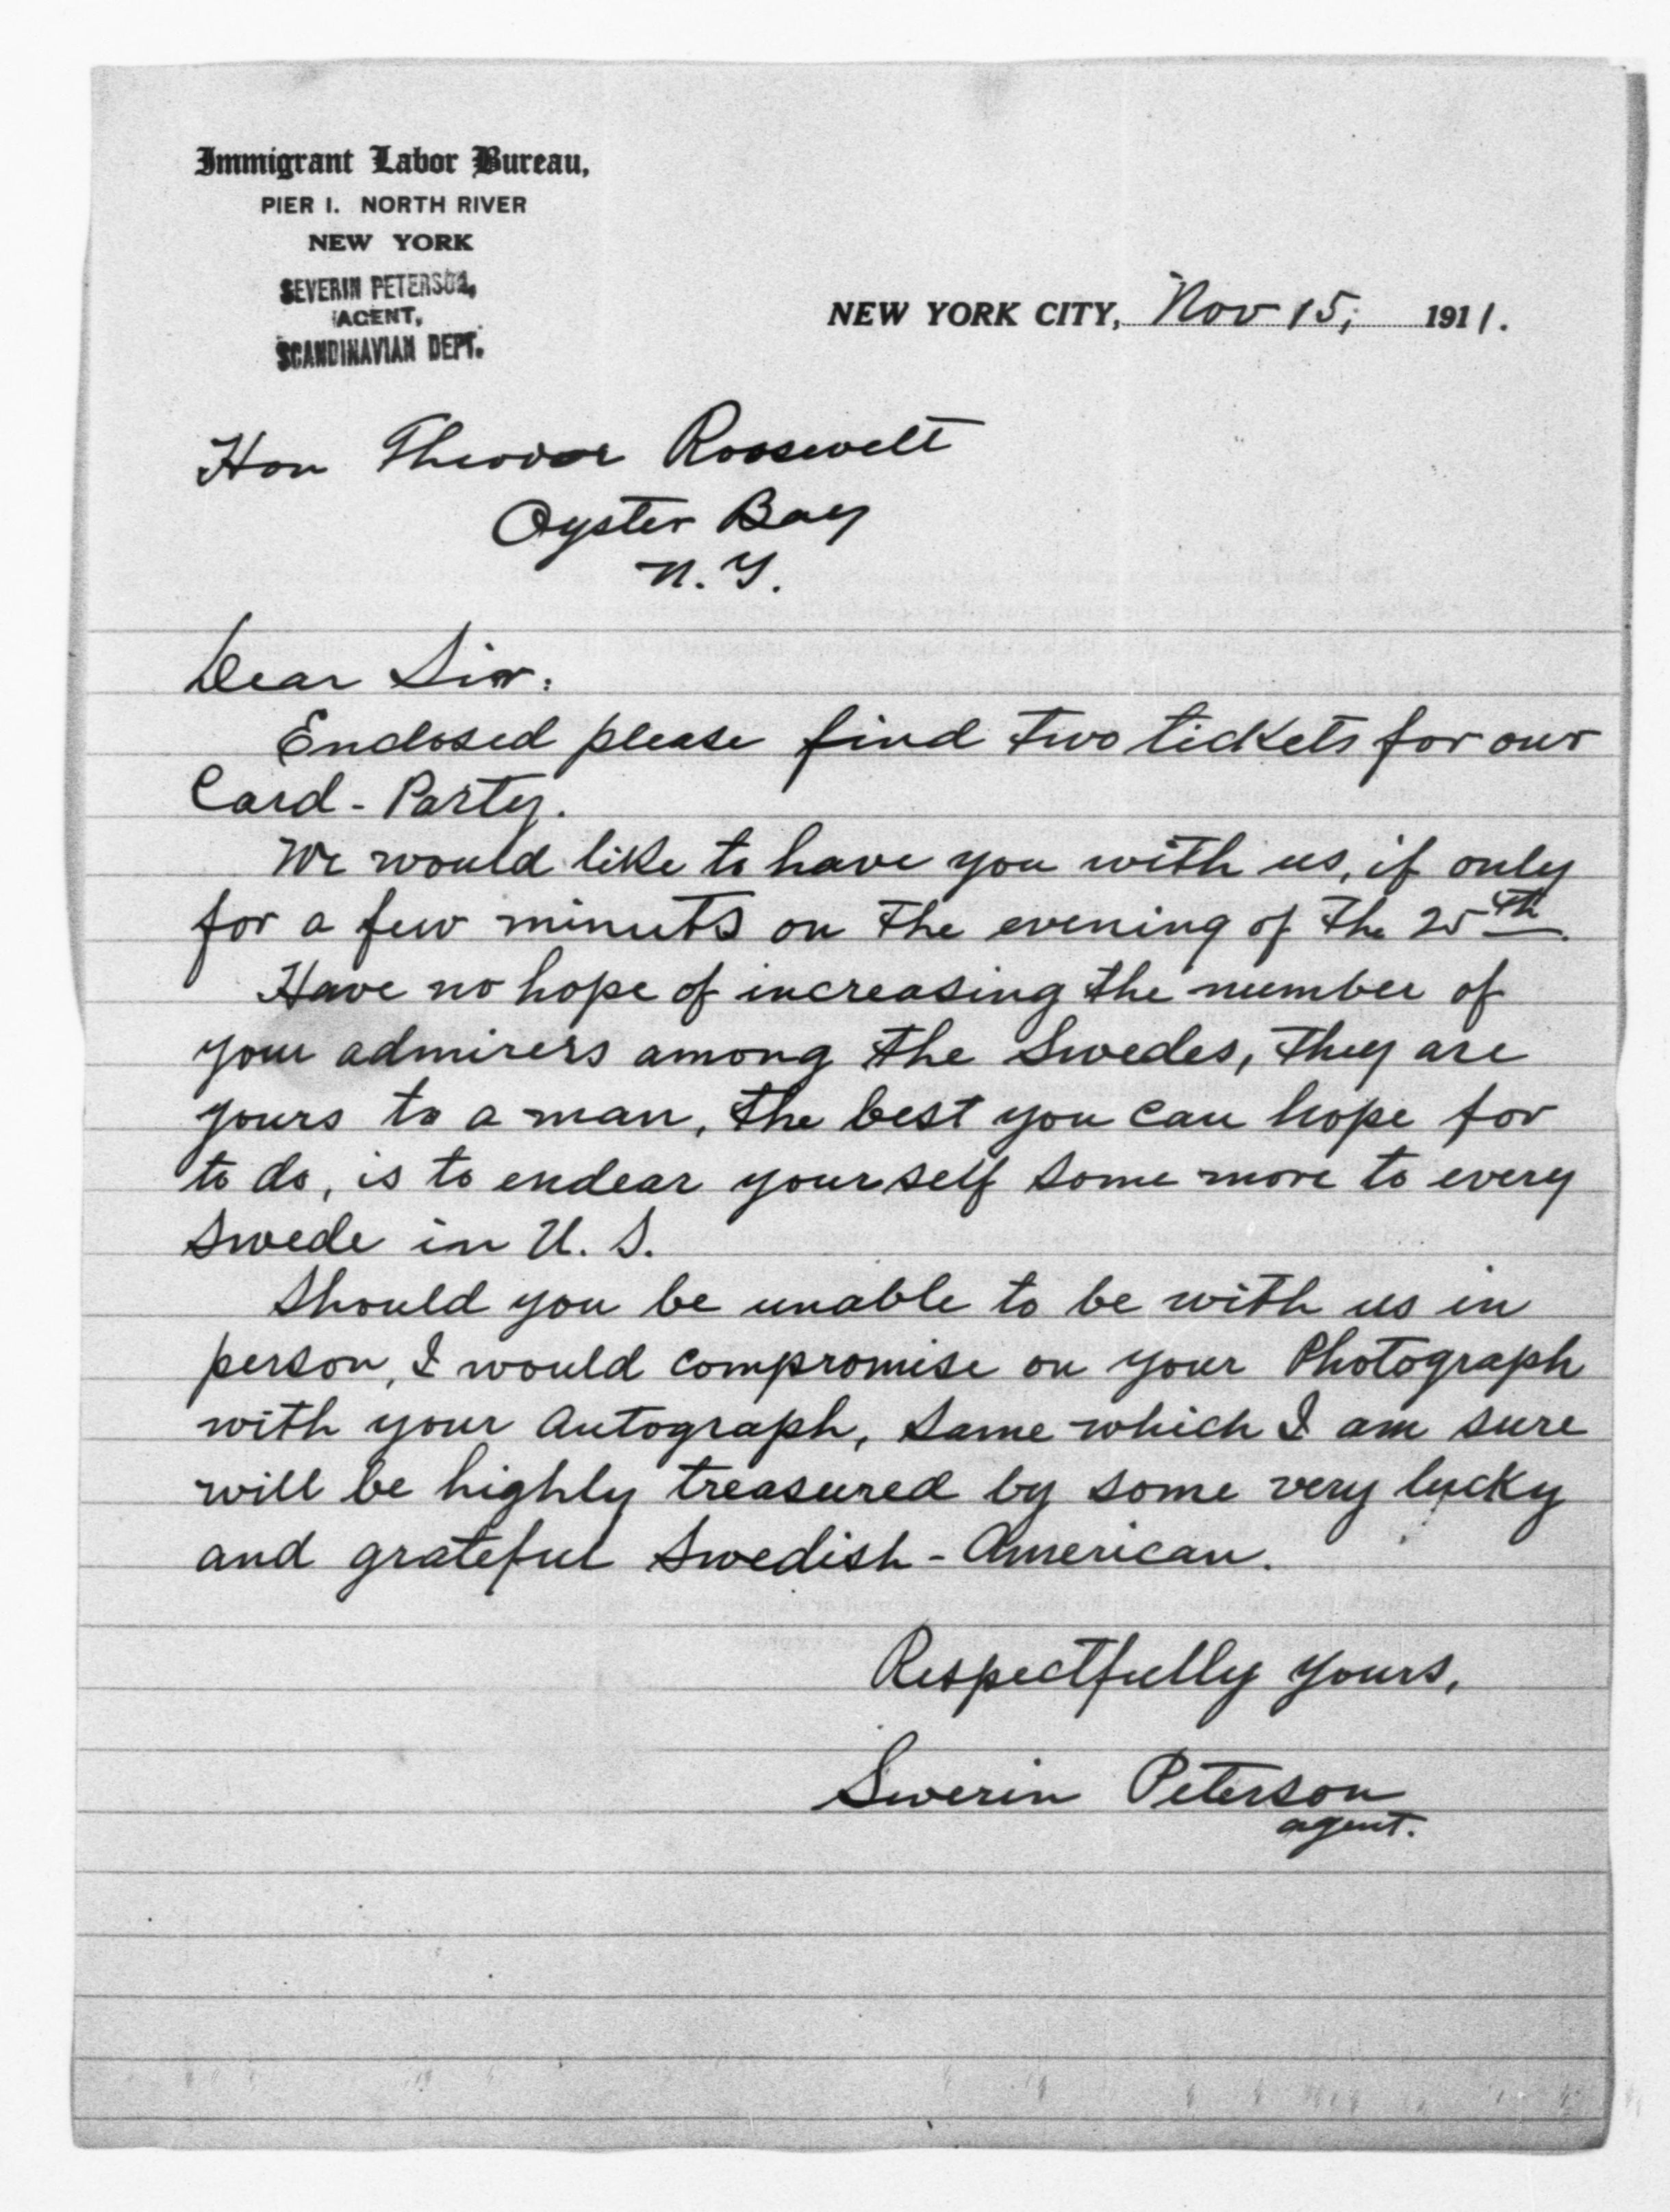 Immigrant Labor Bureau,
PIER 1. NORTH RIVER
NEW YORK
SEVERIN PETERSON,
AGENT,
SCANDINAVIAN DEPT.
NEW YORK CITY, Nov 15, 1911.
Hon Theodor Roosevelt
Oyster Bay
N.Y.
Dear Sir:
Enclosed please find two tickets for our
Card-Party.
We would like to have you with us, if only
for a few minuts on the evening of the 25th.
Have no hope of increasing the number of
your admirers among the Swedes, they are
yours to a man, the best you can hope for
to do, is to endear yourself some more to every
Swede in U. S.
Should you be unable to be with us in
person, I would compromise on your Photograph
with your Autograph, same which I am sure
will be highly treasured by some very lucky
and grateful Swedish-American.
Respectfully yours,
Severin Peterson
agent.